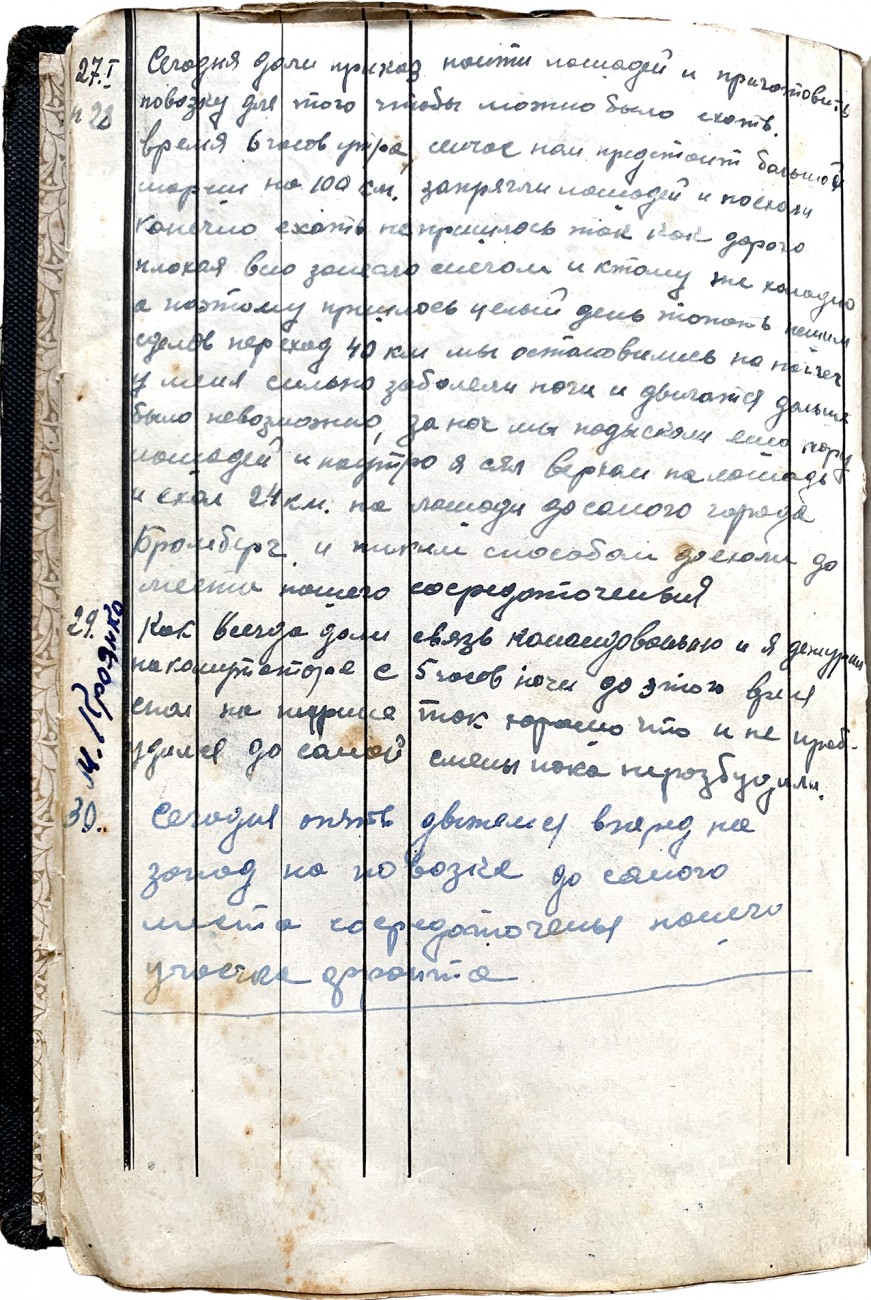 27.I Сегодня дали приказ найти лошадей и приготовить
и 28 повозку для того чтобы можно было ехать.
время 6 часов утра, сичас нам предстоит большой
марш на 100 км. запрягли лошадей и поехали
конечно ехать не пришлось так как дорога
плохая всю занесло снегом и ктому же холодно
а поэтому пришлось целый день топать пешим
сделав переход 40 км мы остановились на ночлег
у меня сильно заболели ноги и двигатся дальше
было невозможно, за ноч мы подыскали ещо пару
лошадей и наутро я сял верхом на лошадь
и ехал 24 км. на лошади до самого города
Бромберг и таким способом доехали до
места нашего сосредоточенья
29. Как всегда дали связь командованью и я дежурил
на комутаторе с 5 часов ночи до этого время
спал на так хорошо что и не проб-
удился до самой смены пока неразбудили.
М. Кроянко
30. Сегодня опять движемся вперед на
запад на повозке до самого
места сосредоточенья нашего
участка фронта